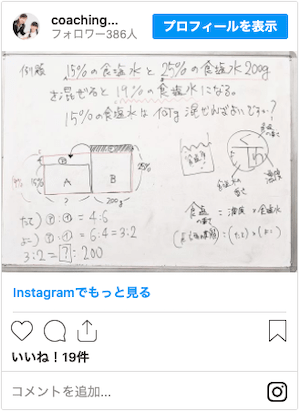 coaching...
フォロワー386人
プロフィールを表示
例題 15%の食塩水と25%の食塩水200g
を混ぜると19%の食塩水になる。
15%の食塩水は何g混ぜればよいですか?
19%
15%
A
B
25%
?
200g
食塩
濃度
たて) ㋐:㋑ = 4:6
よこ) ㋐:㋑ = 6:4 = 3:2
3:2 = ? : 200
食塩 = 濃度 × 食塩水
= (たて) × (よこ)
Instagramでもっと見る
いいね!19件
コメントを追加...